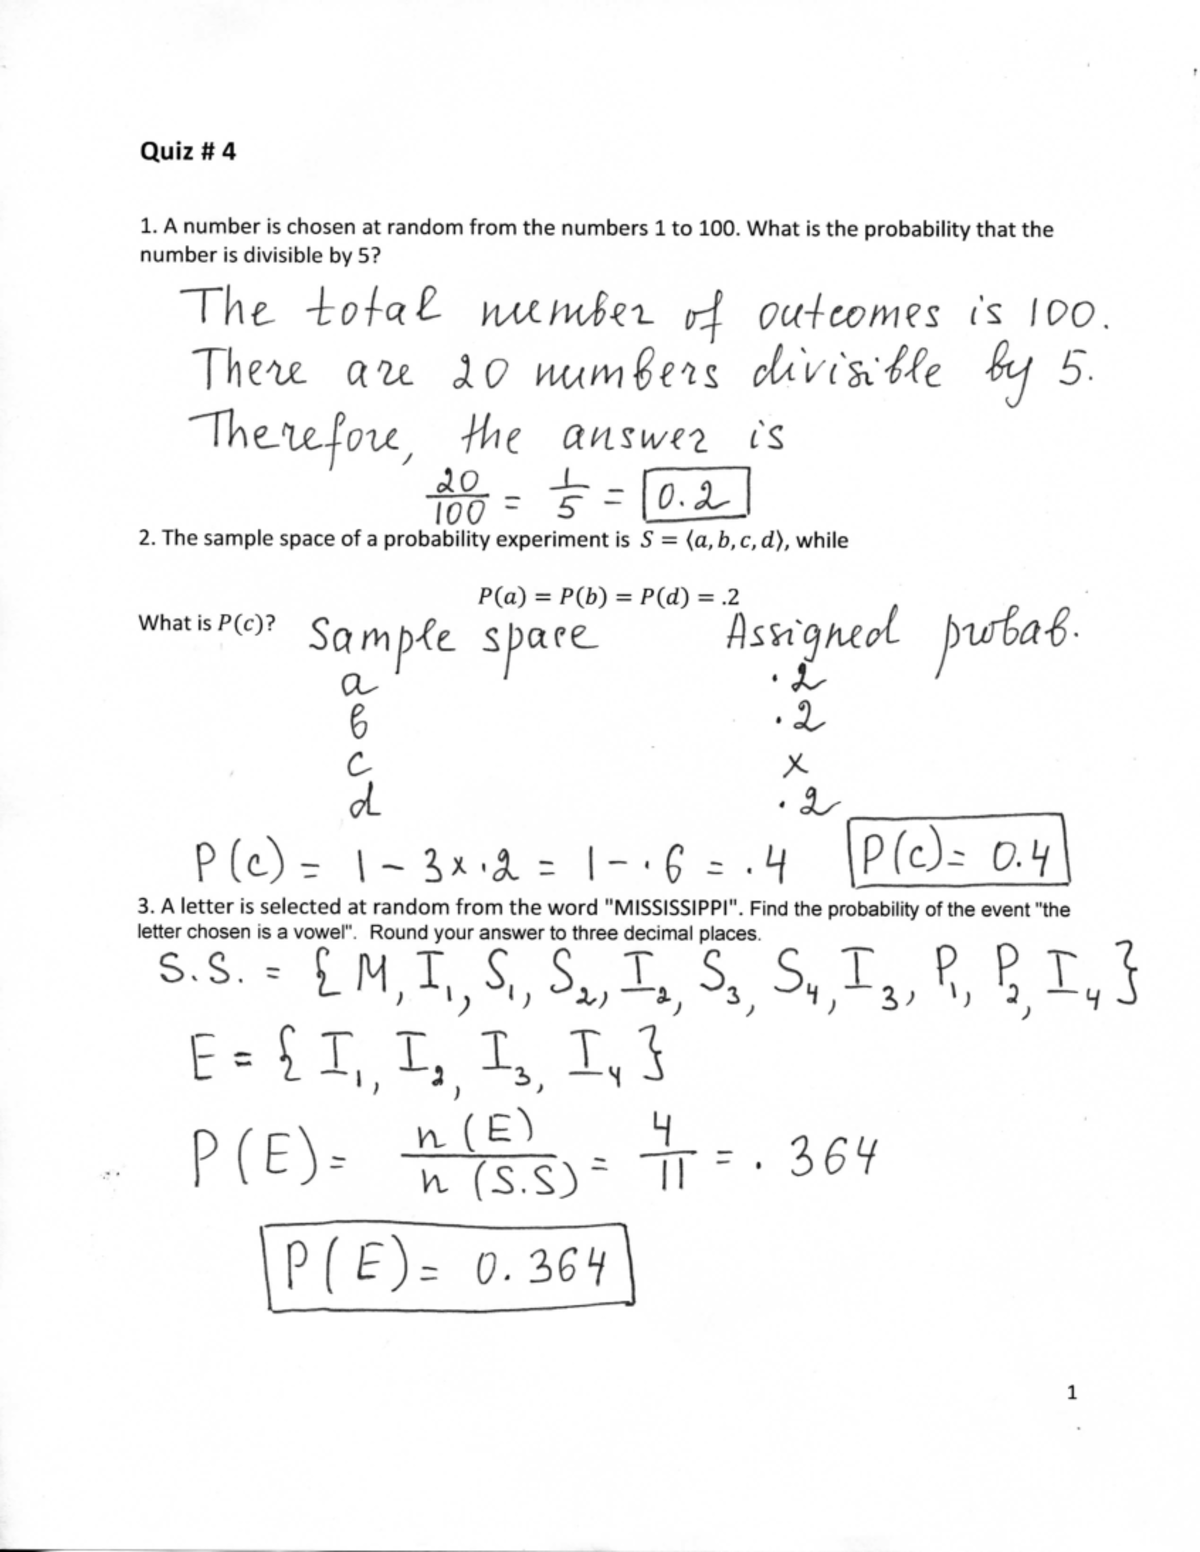 Quiz # 4
1. A number is chosen at random from the numbers 1 to 100. What is the probability that the
number is divisible by 5?
The total number of outcomes is 100.
There are 20 numbers divisible by 5.
Therefore, the answer is
20/100 = 1/5 = 0.2
2. The sample space of a probability experiment is S = ⟨a, b, c, d⟩, while
P(a) = P(b) = P(d) = .2
What is P(c)?
Sample space Assigned probab.
a .2
b .2
c x
d .2
P(c) = 1 - 3 x .2 = 1 - .6 = .4 P(c) = 0.4
3. A letter is selected at random from the word "MISSISSIPPI". Find the probability of the event "the
letter chosen is a vowel". Round your answer to three decimal places.
S.S. = { M, I₁, S₁, S₂, I₂, S₃, S₄, I₃, P₁, P₂, I₄ }
E = { I₁, I₂, I₃, I₄ }
P(E) = n(E)/n(S.S) = 4/11 = .364
P(E) = 0.364
1